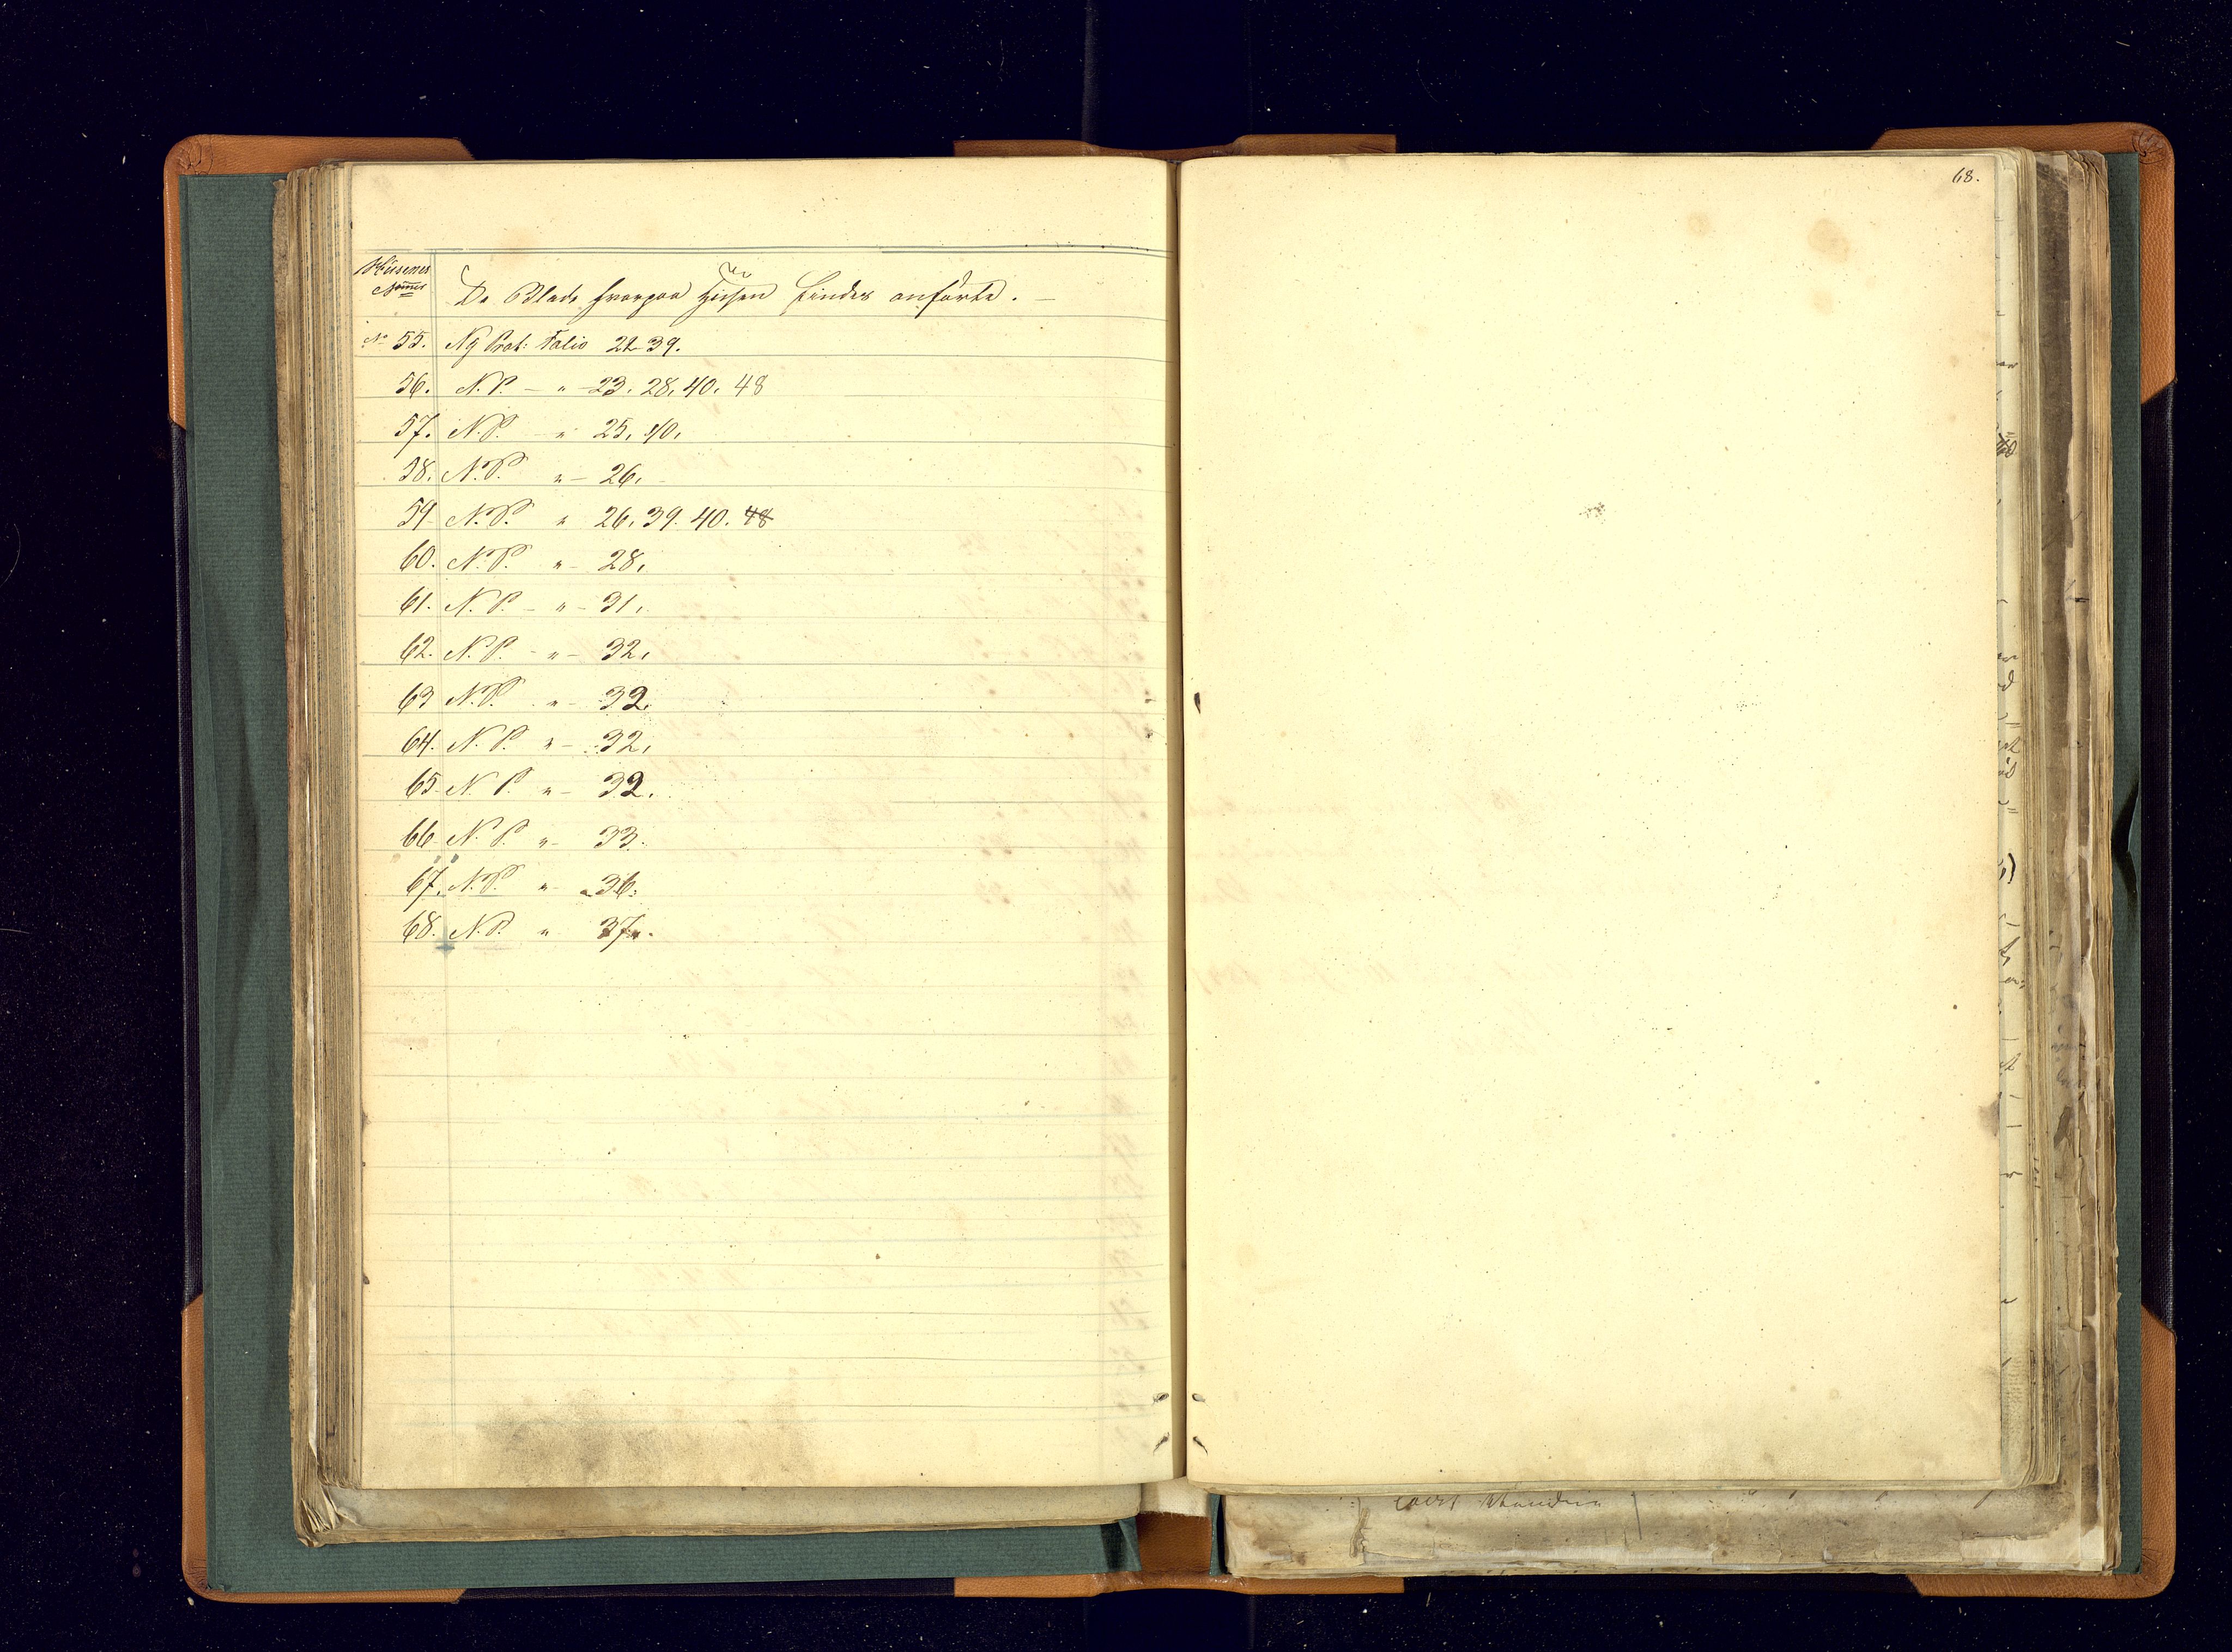 68.
Huusenes
Nommer
De Blade hvorpaa Huusen findes anførte. —
No 55. Ny Prot: Folio 22-39.
56. N. P. — " — 23. 28. 40. 48
57. N. P. — " 25. 40.
58. N. P. " — 26.
59 N. P. " 26. 39. 40. 48
60. N. P. " — 28.
61. N. P. — " — 31.
62. N. P. — " — 32.
63 N. P. " — 32.
64. N. P. " — 32.
65. N. P. " — 32.
66. N. P. " — 33.
67. N. P. " — 36.
68. N. P. " 37.